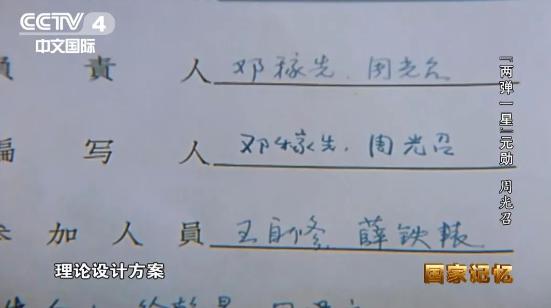 CCTV 4
中文国际
負責人 邓稼先、周光召
编写人 邓稼先、周光召
参加人員 王自修 薛铁辕
理论设计方案
国家记忆
「两弹一星」元勋 周光召